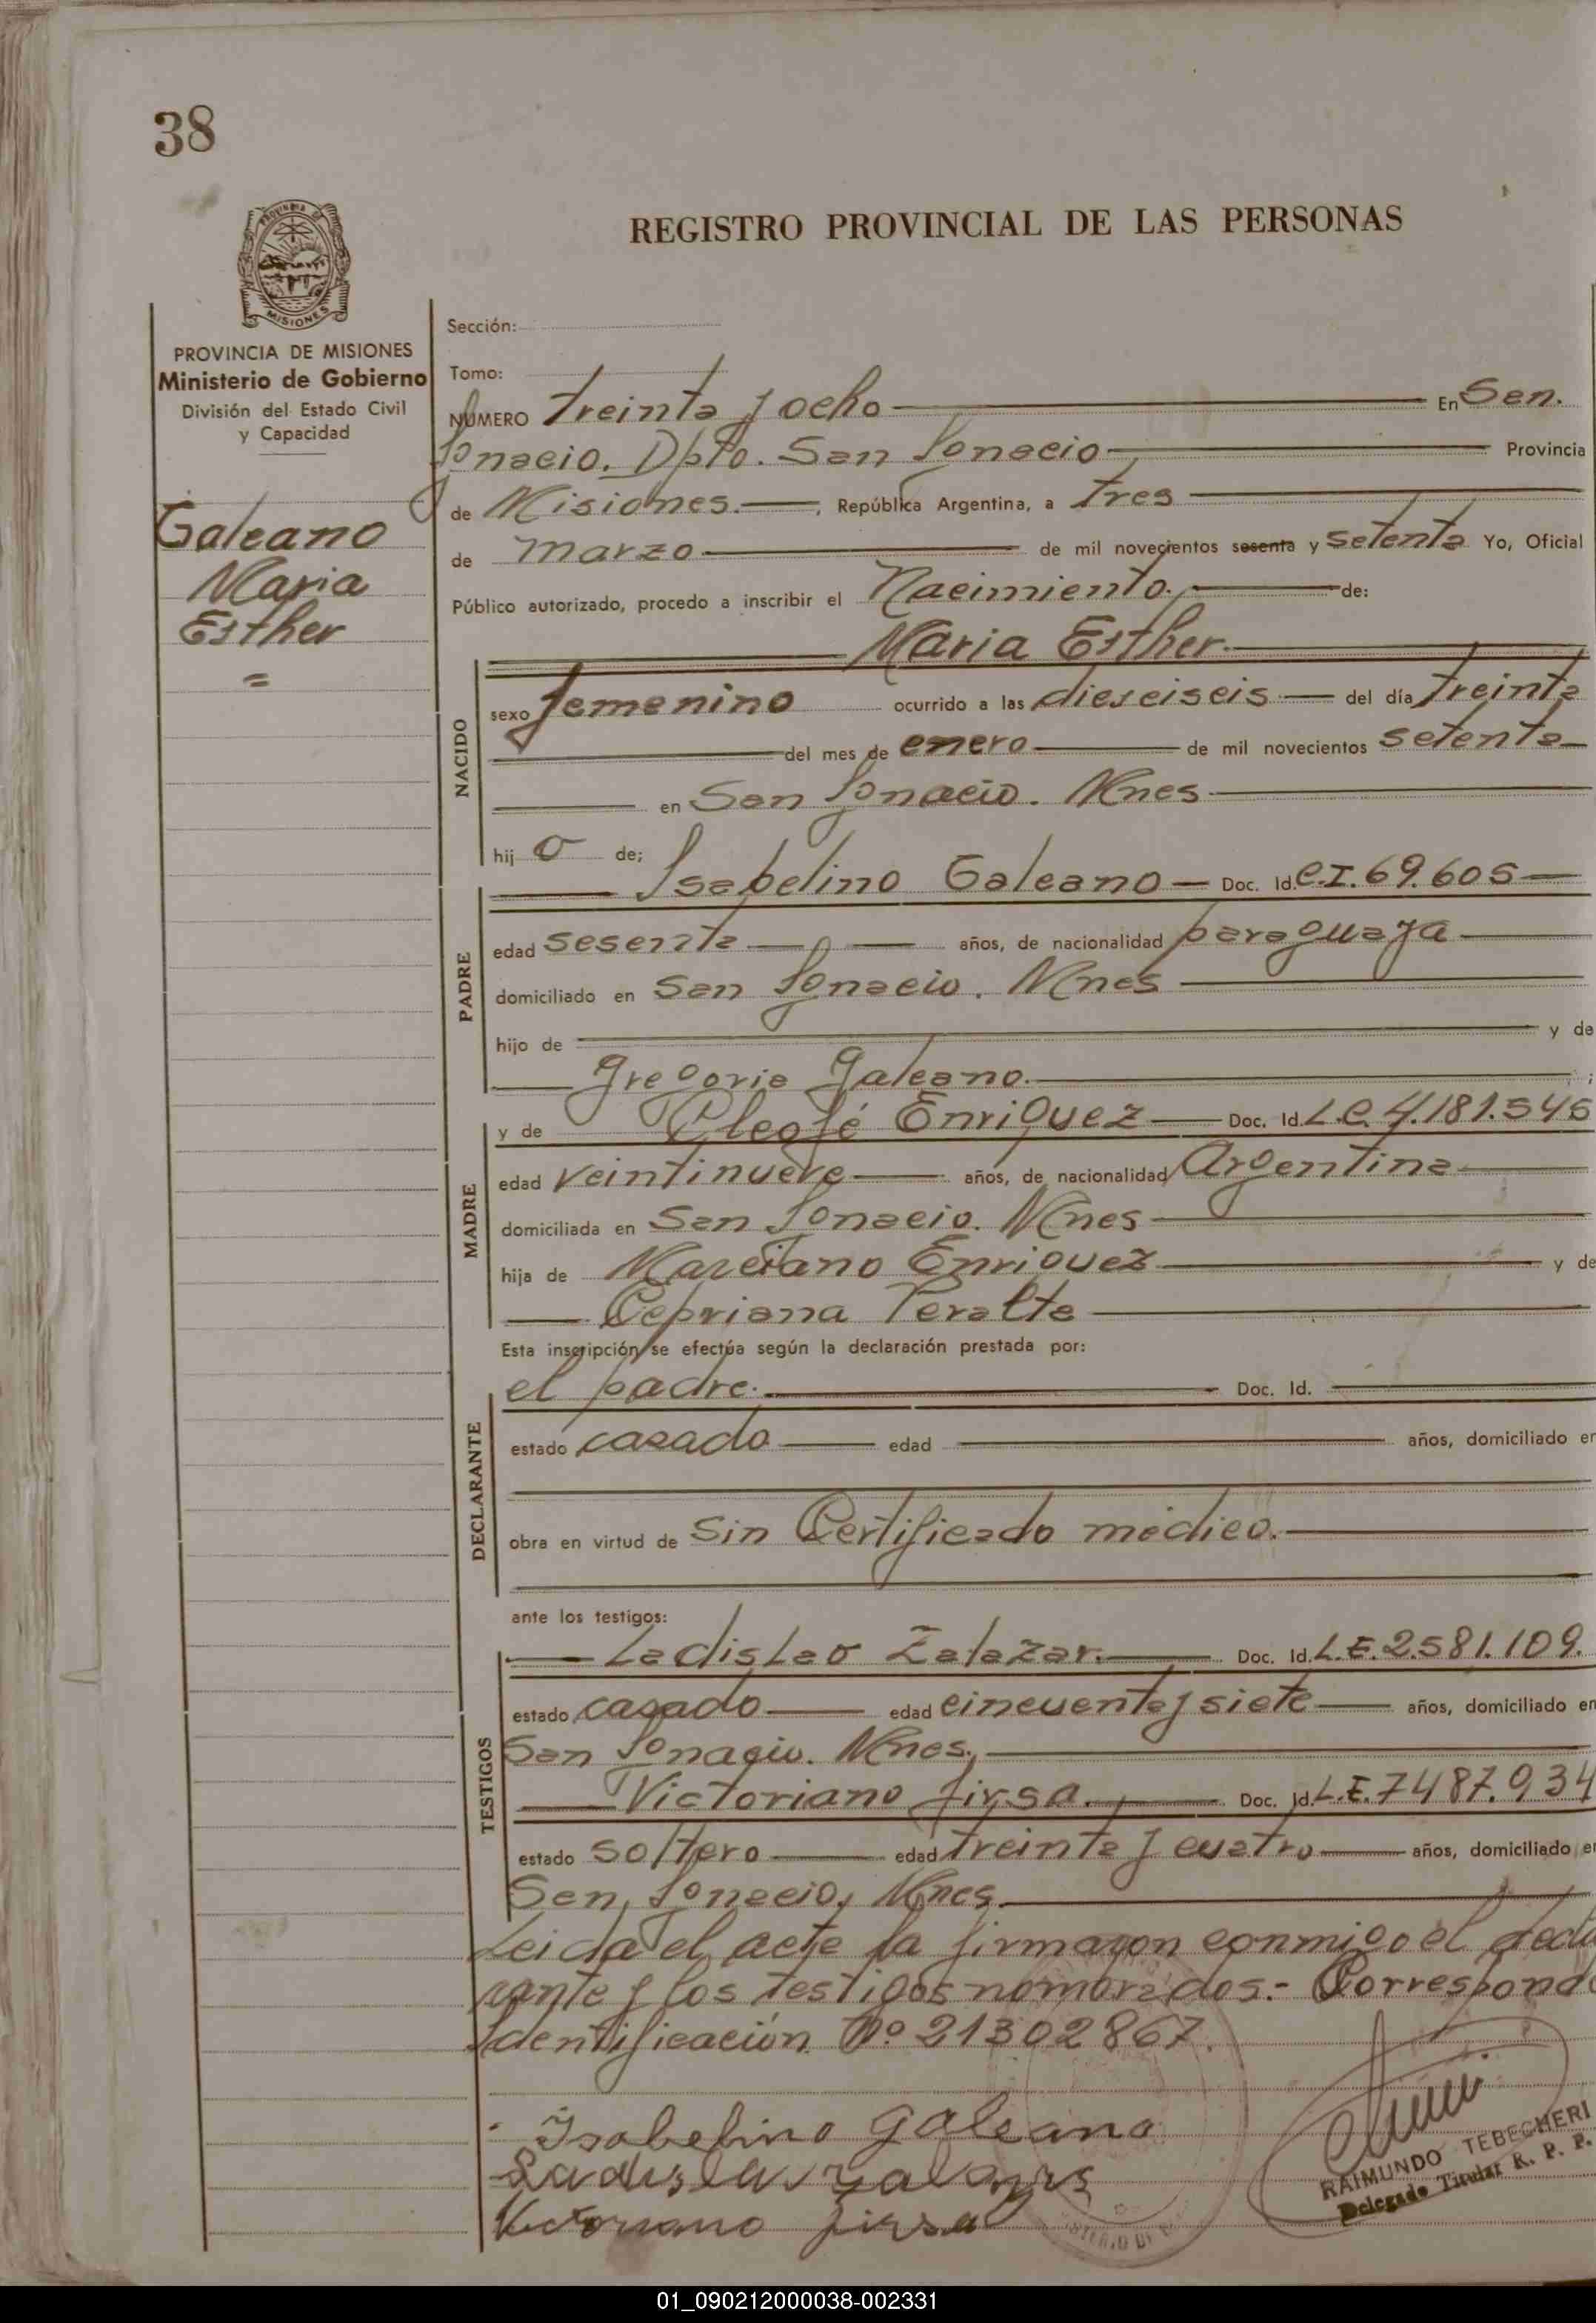 38
REGISTRO PROVINCIAL DE LAS PERSONAS
PROVINCIA DE
MISIONES
PROVINCIA DE MISIONES
Ministerio de Gobierno
División del Estado Civil
y Capacidad
Galeano
Maria
Esther
=
Sección:
Tomo:
NUMERO treinta y ocho En San
Ignacio. Dpto. San Ignacio Provincia
de Misiones. , República Argentina, a tres
de marzo de mil novecientos sesenta y setenta Yo, Oficial
Público autorizado, procedo a inscribir el Nacimiento. de:
Maria Esther.
NACIDO
sexo femenino ocurrido a las dieseiseis del día treinta
del mes de enero de mil novecientos setenta
en San Ignacio. Mnes
hij o de;
Isabelino Galeano Doc. Id. C.I. 69.605
PADRE
edad sesenta años, de nacionalidad paraguaya
domiciliado en San Ignacio. Mnes
hijo de y de
Gregoria Galeano. ;
y de Cleofé Enriquez Doc. Id. L.C. 4.181.545
MADRE
edad veintinueve años, de nacionalidad Argentina
domiciliada en San Ignacio. Mnes
hija de Marciano Enriquez y de
Cepriana Peralta
Esta inscripción se efectúa según la declaración prestada por:
el padre. Doc. Id.
DECLARANTE
estado casado edad años, domiciliado en
obra en virtud de sin Certificado médico.
ante los testigos:
Ladislao Zalazar. Doc. Id. L.E. 2.581.109.
TESTIGOS
estado casado edad cincuenta y siete años, domiciliado en
San Ignacio. Mnes.
Victoriano Jirsa. Doc. Id. L.E. 7487.934
estado soltero edad treinta y cuatro años, domiciliado en
San Ignacio, Mnes.
Leida el acta la firmaron conmigo el decla
rante y los testigos nombrados.- Corresponde
Identificación Nº 21302867.
Isabelino Galeano
Ladislao Zalazar
Victoriano Jirsa
RAIMUNDO TEBECHERI
Delegado Titular R. P. P.
01_090212000038-002331